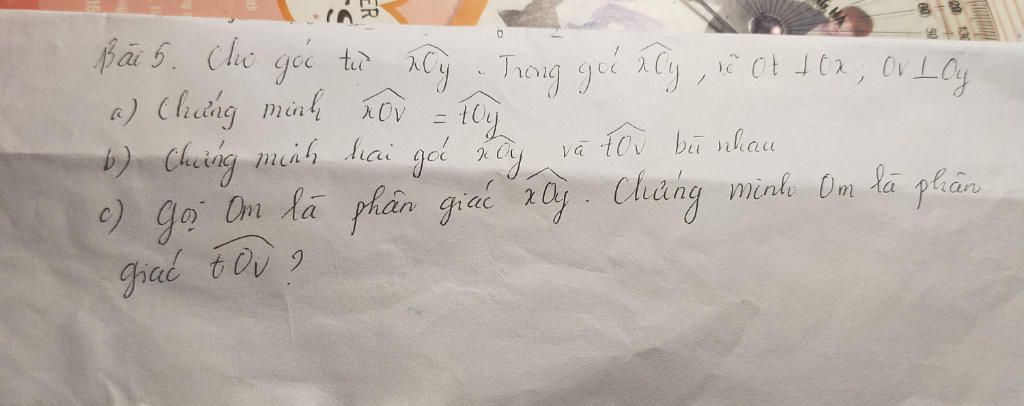 Bài 5. Cho góc tù xOy. Trong góc xOy, vẽ Ot ⊥ Ox; Ov ⊥ Oy
a) Chứng minh xOv = tOy
b) Chứng minh hai góc xOy và tOv bù nhau
c) Gọi Om là phân giác xOy. Chứng minh Om là phân
giác tOv?